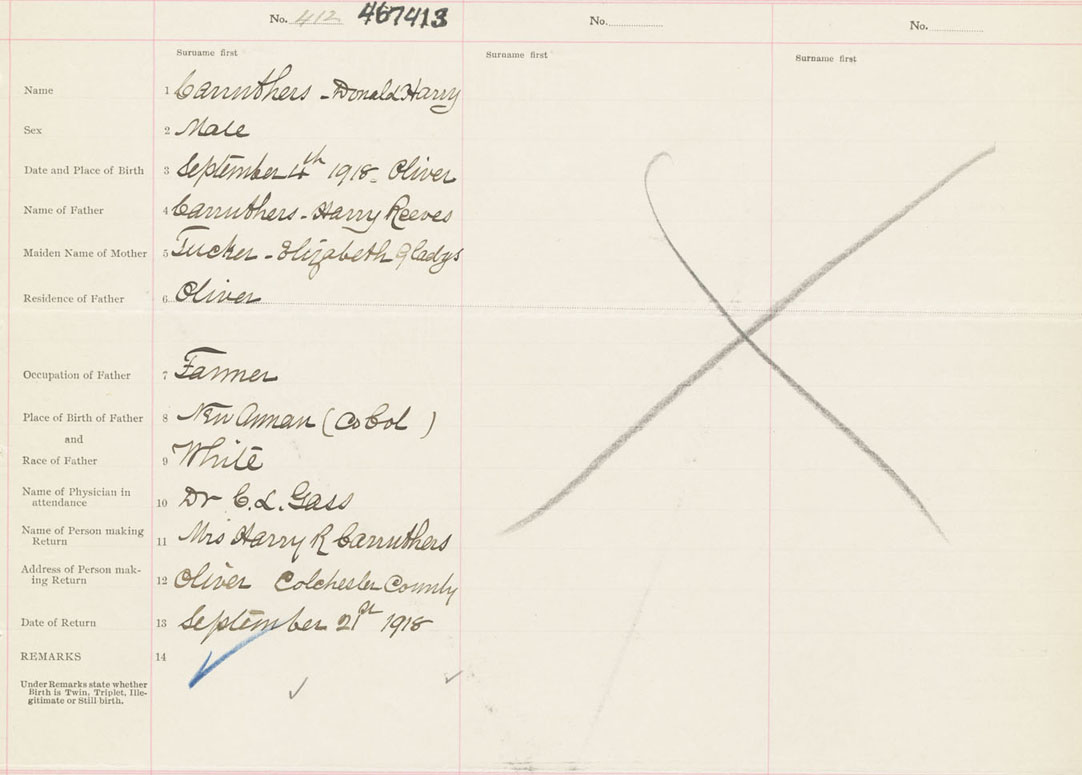 No. 412 467413 No. No.
Surname first Surname first Surname first
Name 1 Carruthers - Donald Harry
Sex 2 Male
Date and Place of Birth 3 September 4th 1918 - Oliver
Name of Father 4 Carruthers - Harry Reeves
Maiden Name of Mother 5 Tucker - Elizabeth Gladys
Residence of Father 6 Oliver
Occupation of Father 7 Farmer
Place of Birth of Father 8 New Annan (Co Col )
and
Race of Father 9 White
Name of Physician in
attendance 10 Dr C. L. Gass
Name of Person making
Return 11 Mrs Harry R Carruthers
Address of Person mak-
ing Return 12 Oliver Colchester County
Date of Return 13 September 21st 1918
REMARKS 14
Under Remarks state whether
Birth is Twin, Triplet, Ille-
gitimate or Still birth.